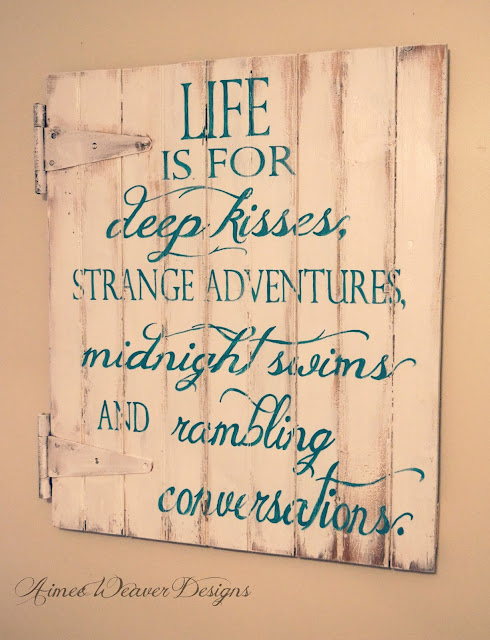 LIFE
IS FOR
deep kisses,
STRANGE ADVENTURES,
midnight swims
AND rambling
conversations.
Aimee Weaver Designs